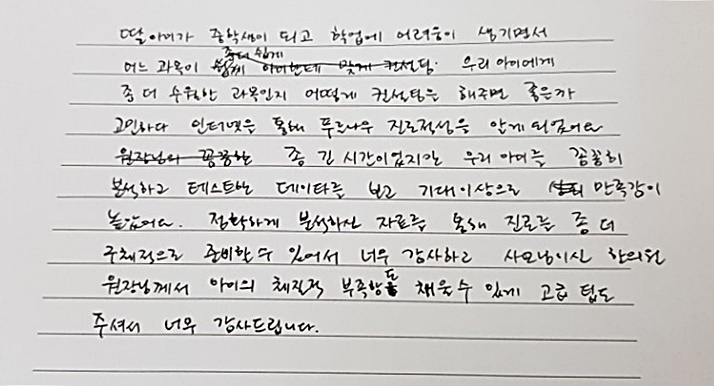 딸아이가 중학생이 되고 학업에 어려움이 생기면서
좀더 쉽게
어느 과목이 쉽게 아이한테 맞게 컨설팅. 우리 아이에게
좀 더 수월한 과목인지 어떻게 컨설팅을 해주면 좋은가
고민하다 인터넷을 통해 푸르나우 진로적성을 알게 되었어요
원장님의 꼼꼼한 좀 긴 시간이었지만 우리 아이를 꼼꼼히
분석하고 테스트한 데이타를 보고 기대이상으로 만족감이
높았어요. 정확하게 분석하신 자료를 통해 진로를 좀 더
구체적으로 준비할 수 있어서 너무 감사하고 사모님이신 한의원
원장님께서 아이의 체질적 부족함도 채울 수 있게 고급 팁도
주셔서 너무 감사드립니다.